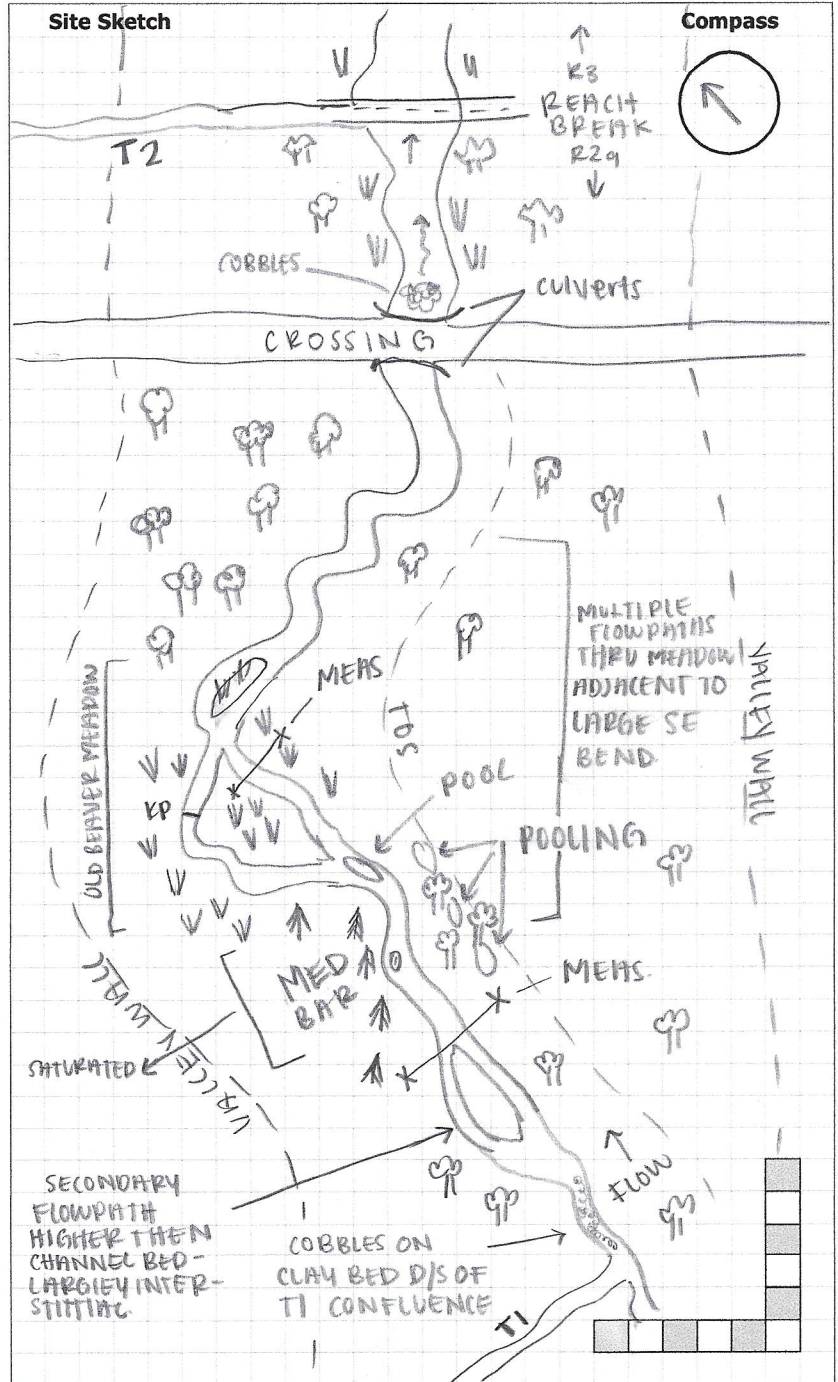 Site Sketch
Compass
R3
REACH
BREAK
R2a
T2
COBBLES
culverts
CROSSING
MULTIPLE
FLOWPATHS
THRU MEADOW/
ADJACENT TO
LARGE SE
BEND
VALLEY WALL
MEAS
TOS
OLD BEAVER MEADOW
POOL
KP
POOLING
MED
BAR
MEAS.
VALLEY WALL
SATURATED
FLOW
SECONDARY
FLOWPATH
HIGHER THEN
CHANNEL BED-
LARGLEY INTER-
STITIAL
COBBLES ON
CLAY BED D/S OF
T1 CONFLUENCE
T1